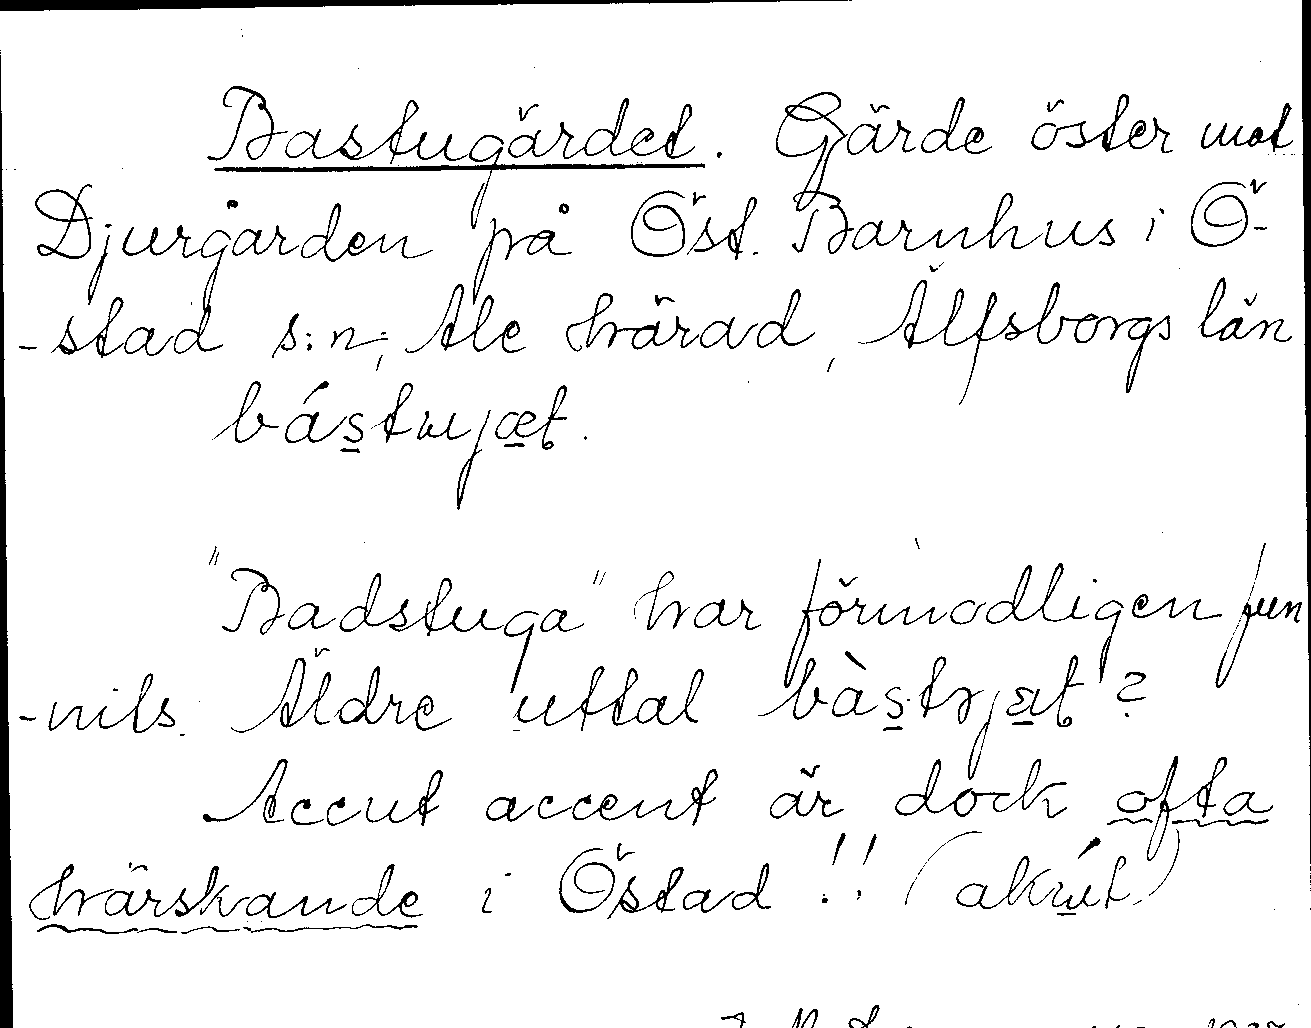 Bastugärdet. Gärde öster mot
Djurgården på Öst. Barnhus i Ö-
-stad s:n; Ale härad, Älfsborgs län
bástujæt.
"Badstuga" har förmodligen fun
-nits. Äldre uttal bàstujæt?
Accut accent är dock ofta
härskande i Östad!! (akut)